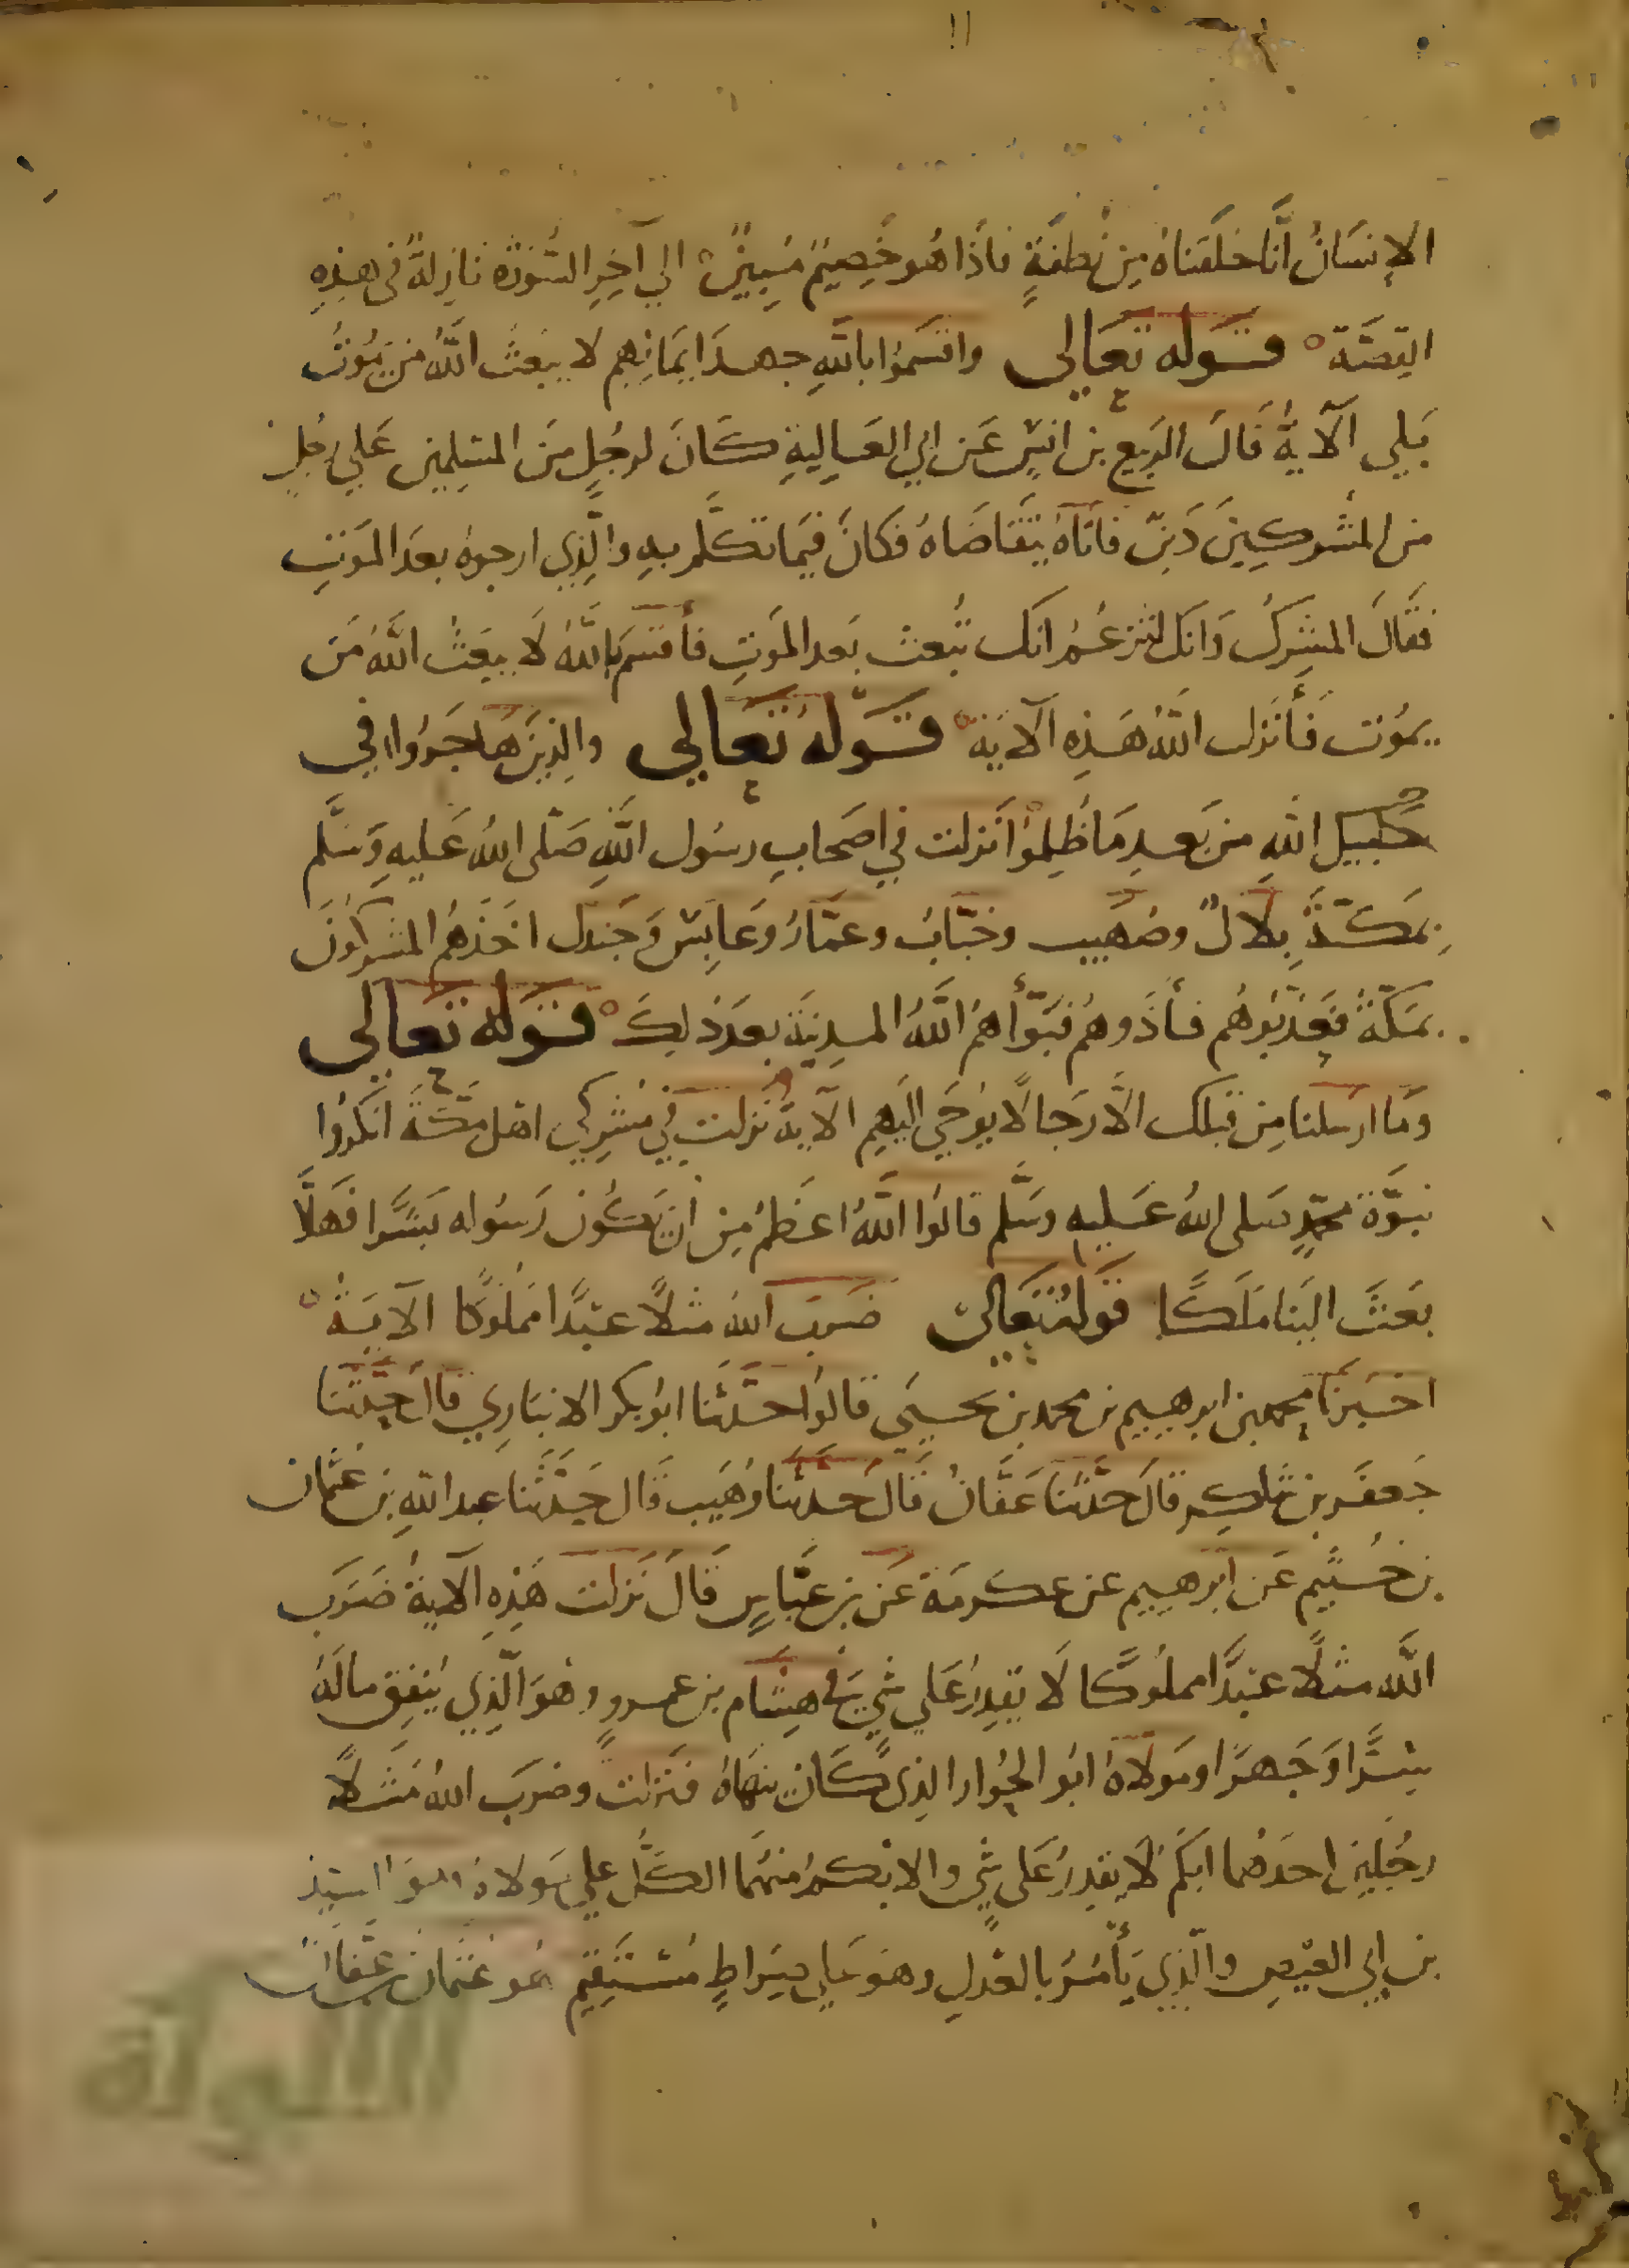 الإنسَانُ أَنَّا خَلَقْنَاهُ مِن نُطفَةٍ فاذَا هُو خَصِيمٌ مُبِينٌ الي آخِرِ السُّورَةِ نازِلةٌ فى هذِهِ
القِصَّة ° قوله تعَالى واقسَموُا باللَّهِ جهدَ ايمَانِهِم لا يبعَثُ اللَّهُ مَن يمُوتُ
بَلي الآيةُ قَالَ الربيع بن انسٍ عَن ابي العَالِيةِ كَانَ لرجُلٍ مِنَ المسلِمِين عَلي رجُلٍ
من المشركِينَ دَينٌ فاتاهُ يتَقاضَاهُ فكانَ فيمَا تكلَّم بِهِ والَّذِي ارجوهُ بعدَ المَوتِ
فقَالَ المشركُ وَانك لتزعُم انك تُبعث بَعد المَوتِ فأقسَم باللَّهِ لَا يبعَثُ اللَّهُ مَن
يمُوت فَأنزلَ اللَّهُ هَذِه الآيَة ° قَولهُ تعَالي والذِينَ هَاجَرُوا في
سبيل اللهِ مِن بَعدِ مَا ظُلِمُوا نَزلت في اصحَابِ رسُول اللَّهِ صَلّى اللهُ عَليهِ وَسَلَّم
بمَكةَ بِلالٌ وصُهَيب وخبّابُ وعمَّارُ وعَابِس وَجَندل اخَذَهُم المشركونَ
بمَكّةَ فعَذّبُوهُم فأذَوهُم فبَوّأهمُ اللَّهُ المدِينَة بعدَ ذَلِكَ ° قوله تعَالى
وَمَا ارسَلنا مِن قبلك الَّا رجَالًا يوُحَي اليهِم الآية نَزلت في مُشرِكي اهل مكّةَ انكرُوا
نبوَّة محمّدٍ صَلى اللهُ عَليه وسَلَّم قالوُا اللَّهُ اعظَمُ مِن أن يَكُون رَسُوله بَشَرًا فَهَلَّا
بَعَثَ الينَا مَلَكًا قَولهُ تَعَالى ضَربَ اللهُ مثلًا عبدًا مملُوكًا الآيَة °
اخبَرنَا محمد بن ابرهيم بن محمد بن يحيى قالوُا حدَّثنَا ابوُ بكر الانبَارِي قالَ حدَّثنَا
جَعفَر بن شاكِر قالَ حدَّثنَا عَفَّانُ قَالَ حدثنَا وُهَيب قَالَ حَدَّثَنا عبدالله بن عُثمَان
بن خُثَيمٍ عَن ابرهيم عن عكرمَة عَن بن عبَّاسٍ قَالَ نَزلت هَذِهِ الآيةُ ضَرَب
اللَّه مثلًا عبدًا مملُوكًا لَا يقدِرُ عَلي شي في هِشَام بن عمرو وهُوَ الّذِي يُنفِق مالَهُ
سِرًّا وَجَهرًا ومَولاهُ ابُو الجوَار الذِى كَان ينهَاهُ فنزلت وضرَبَ اللهُ مَثَلًا
رجُلينِ احدَهُما ابكَمُ لَا يقدرُ عَلي شي والابكمُ منهُمَا الكَلُّ علي مَولاهُ هوَ اسَيد
بن ابي العِيصِ والَّذِي يَأمُرُ بالعَدلِ وهَو عَلي صِرَاطٍ مُستَقِيمٍ هُو عُثمَان بن عَفّان